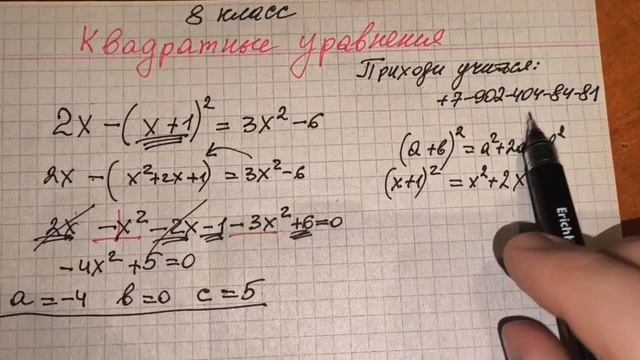 8 класс
Квадратные уравнения
Приходи учиться:
+7-902-404-84-81
2x-(x+1)²=3x²-6
2x-(x²+2x+1)=3x²-6
2x-x²-2x-1-3x²+6=0
-4x²+5=0
a=-4 в=0 c=5
(a+в)²=a²+2
(x+1)²=x²+2x
Erich